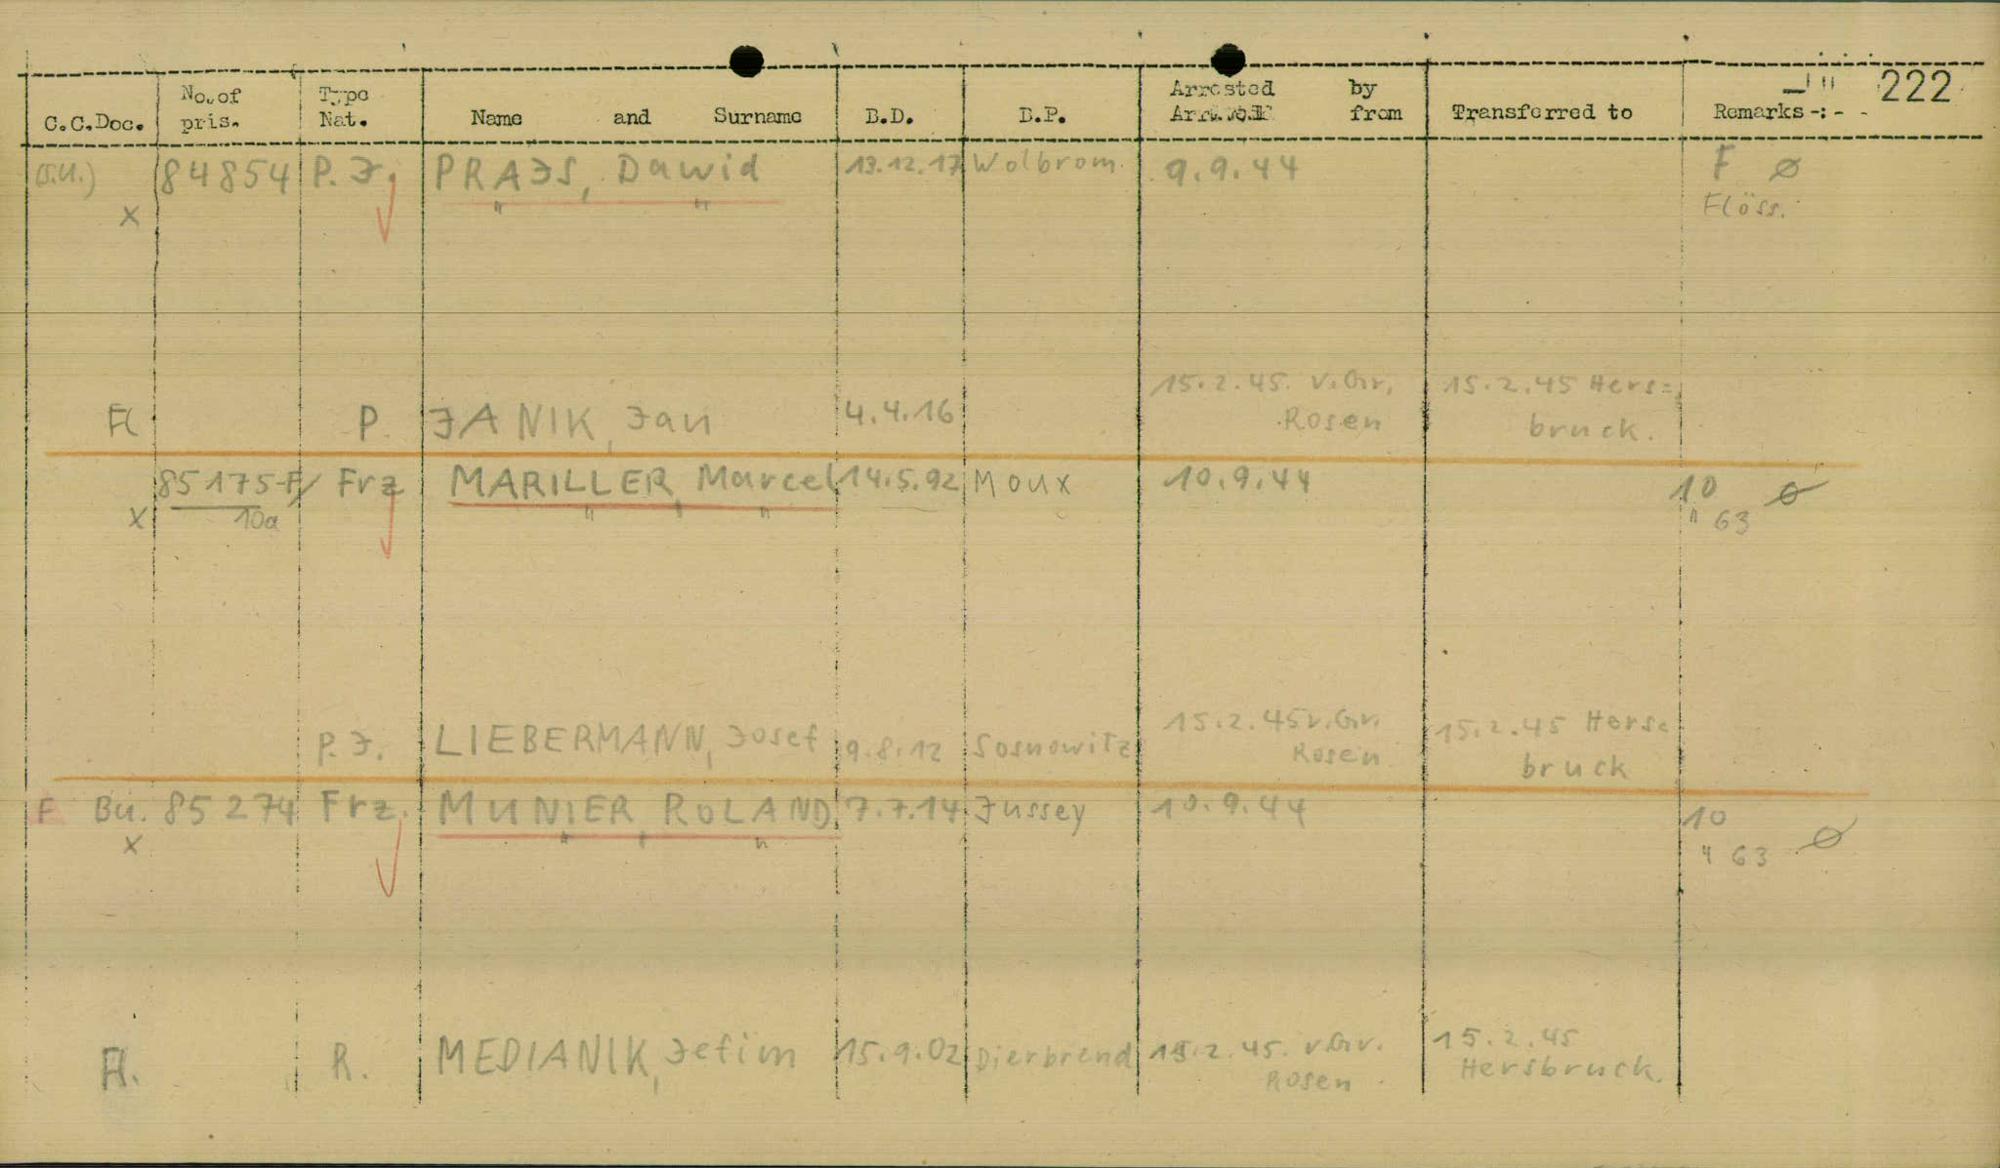 222
C.C.Doc. No. of pris. Type Nat. Name and Surname B.D. B.P. Arrested by from Transferred to Remarks -:- -
84854 P.J. PRAJS, Dawid 13.12.17 Wolbrom. 9.9.44 F ø
x " " Flöss.
Fl P. JANIK, Jan 4.4.16 15.2.45. v.Gr. 15.2.45 Hers=
Rosen bruck.
85175-F/ Frz MARILLER, Marcel 14.5.92 Moux 10.9.44 10 ø
x 10a " " " " 63
P.J. LIEBERMANN, Josef 9.8.12 Sosnowitz 15.2.45 v.Gr. 15.2.45 Hers=
Rosen bruck
F Bu. 85274 Frz. MUNIER, ROLAND 7.7.14 Jussey 10.9.44 10 ø
x " " " " 63
Fl. R. MEDIANIK, Jefim 15.9.02 Dierbrend 15.2.45. v.Gr. 15.2.45
Rosen Hersbruck.